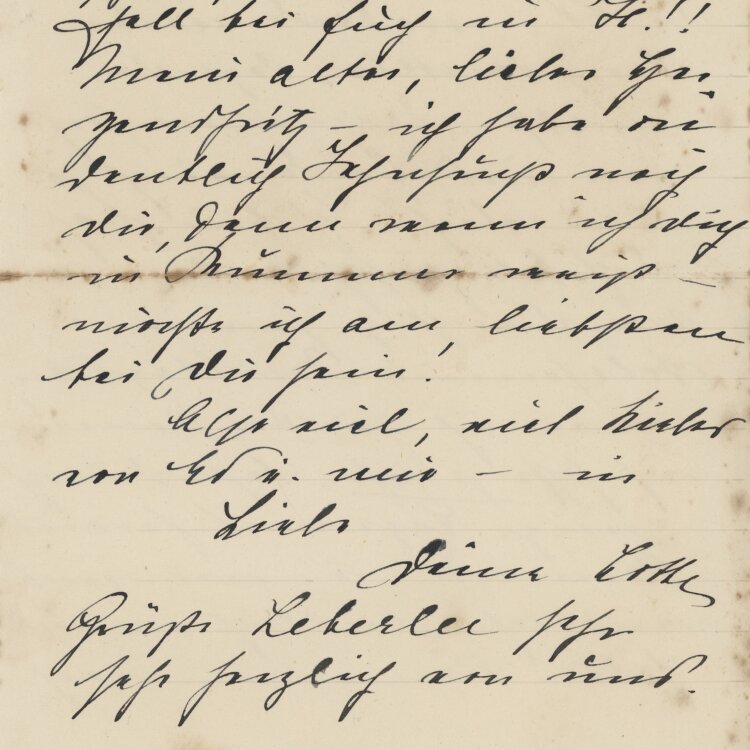 fall bei Euch in H.!!
Mein alter, lieber
 – ich habe or
dentlich Sehnsucht nach
dir, denn wenn ich dich
in Kummer weiß –
möchte ich am liebsten
bei Dir sein!
Also viel, viel Liebes
von Ed u. mir – in
Liebe
Deine Lotte
Grüße Leberlee sehr
sehr herzlich von uns.